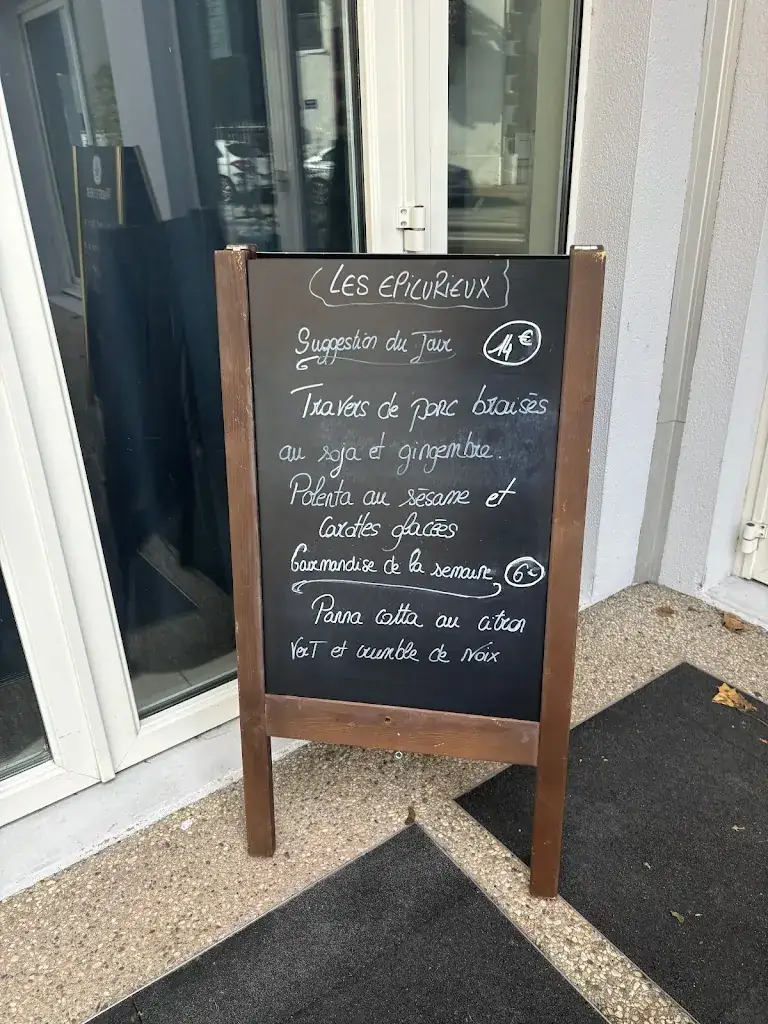 LES EPICURIEUX
Suggestion du Jour 14€
Travers de porc braisés
au soja et gingembre.
Polenta au sésame et
Carottes glacées
Gourmandise de la semaine 6€
Panna cotta au citron
VerT et crumble de Noix